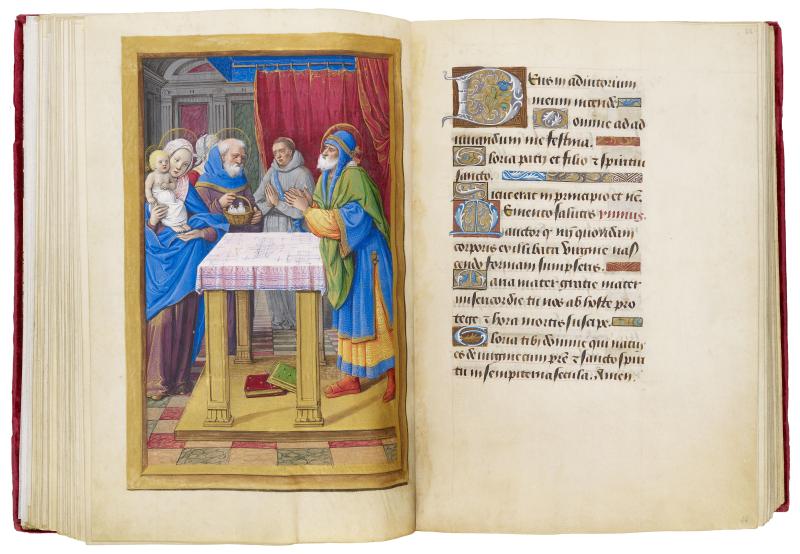 Deus in adiutorium
meum intende
Domine ad ad
iuuandum me festina
Gloria patri et filio ⁊ spiritu
sancto.
Sicut erat in principio et nc̃.
Memento salutis ymnus.
auctor q̃ nr̃i quondam
corporis ex illibata virgine nas
cendo formam sumpseris.
Maria mater gratie mater
misericordie tu nos ab hoste pro
tege ⁊ hora mortis suscipe.
Gloria tibi domine qui natus
es de virgine cum pr̃e ⁊ sancto spiri
tu in sempiterna secula. Amen